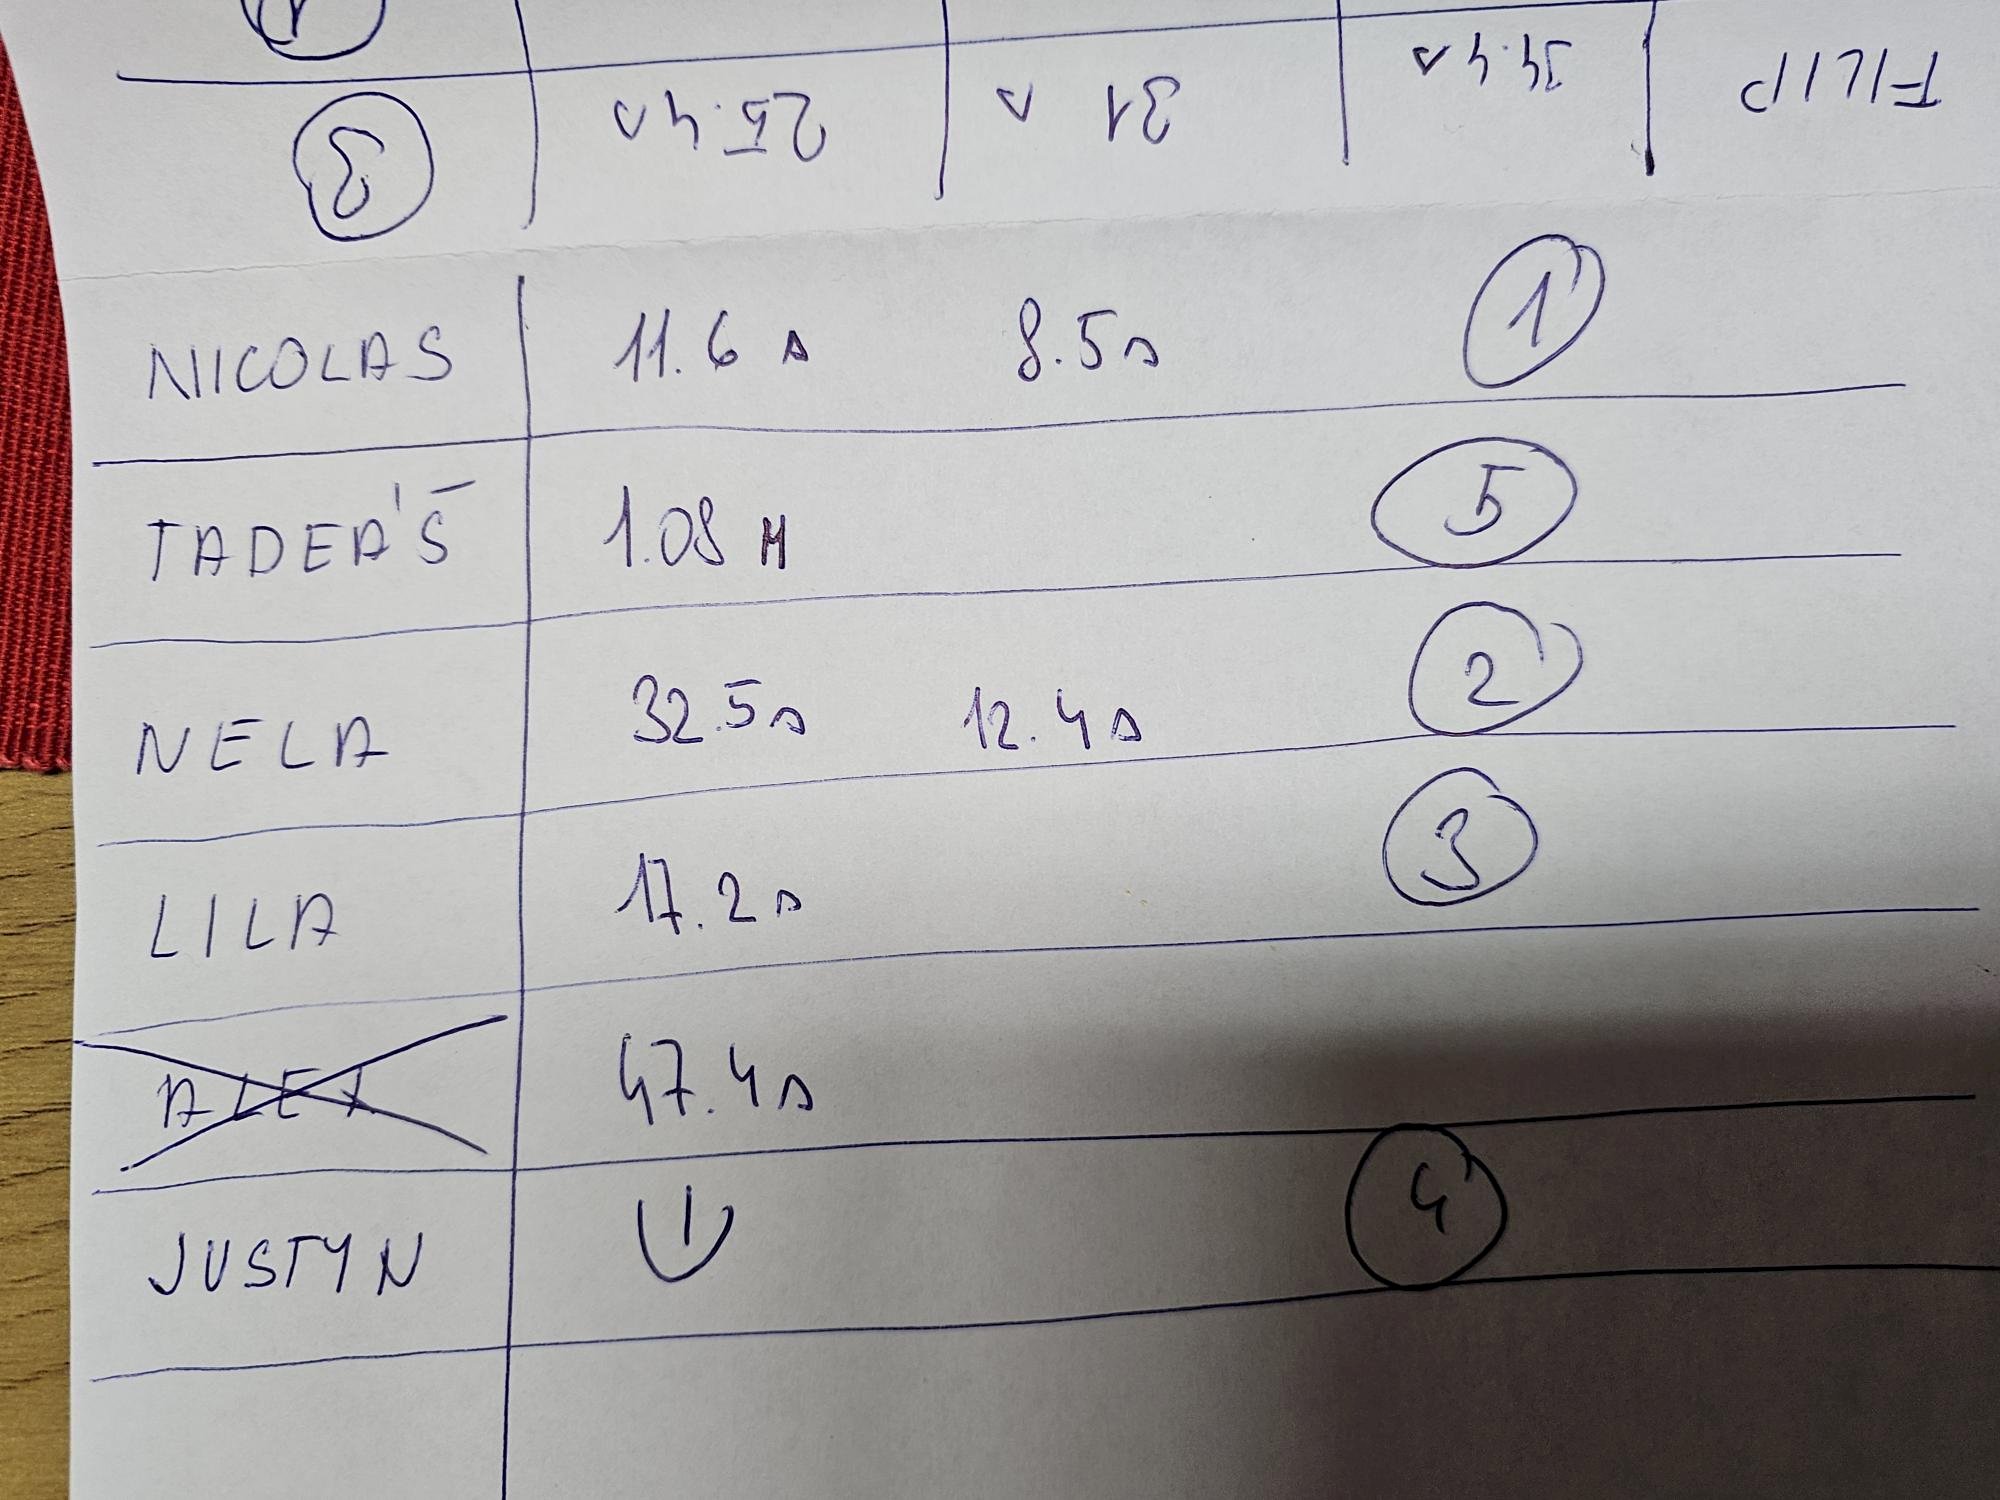 FILIP 34.4s 31 s 25.4s 3
NICOLAS 11.6 s 8.5s 1
TADEÁŠ 1.08 M 5
NELA 32.5s 12.4s 2
LILA 17.2s 3
ALEX 47.4s
JUSTYN 4